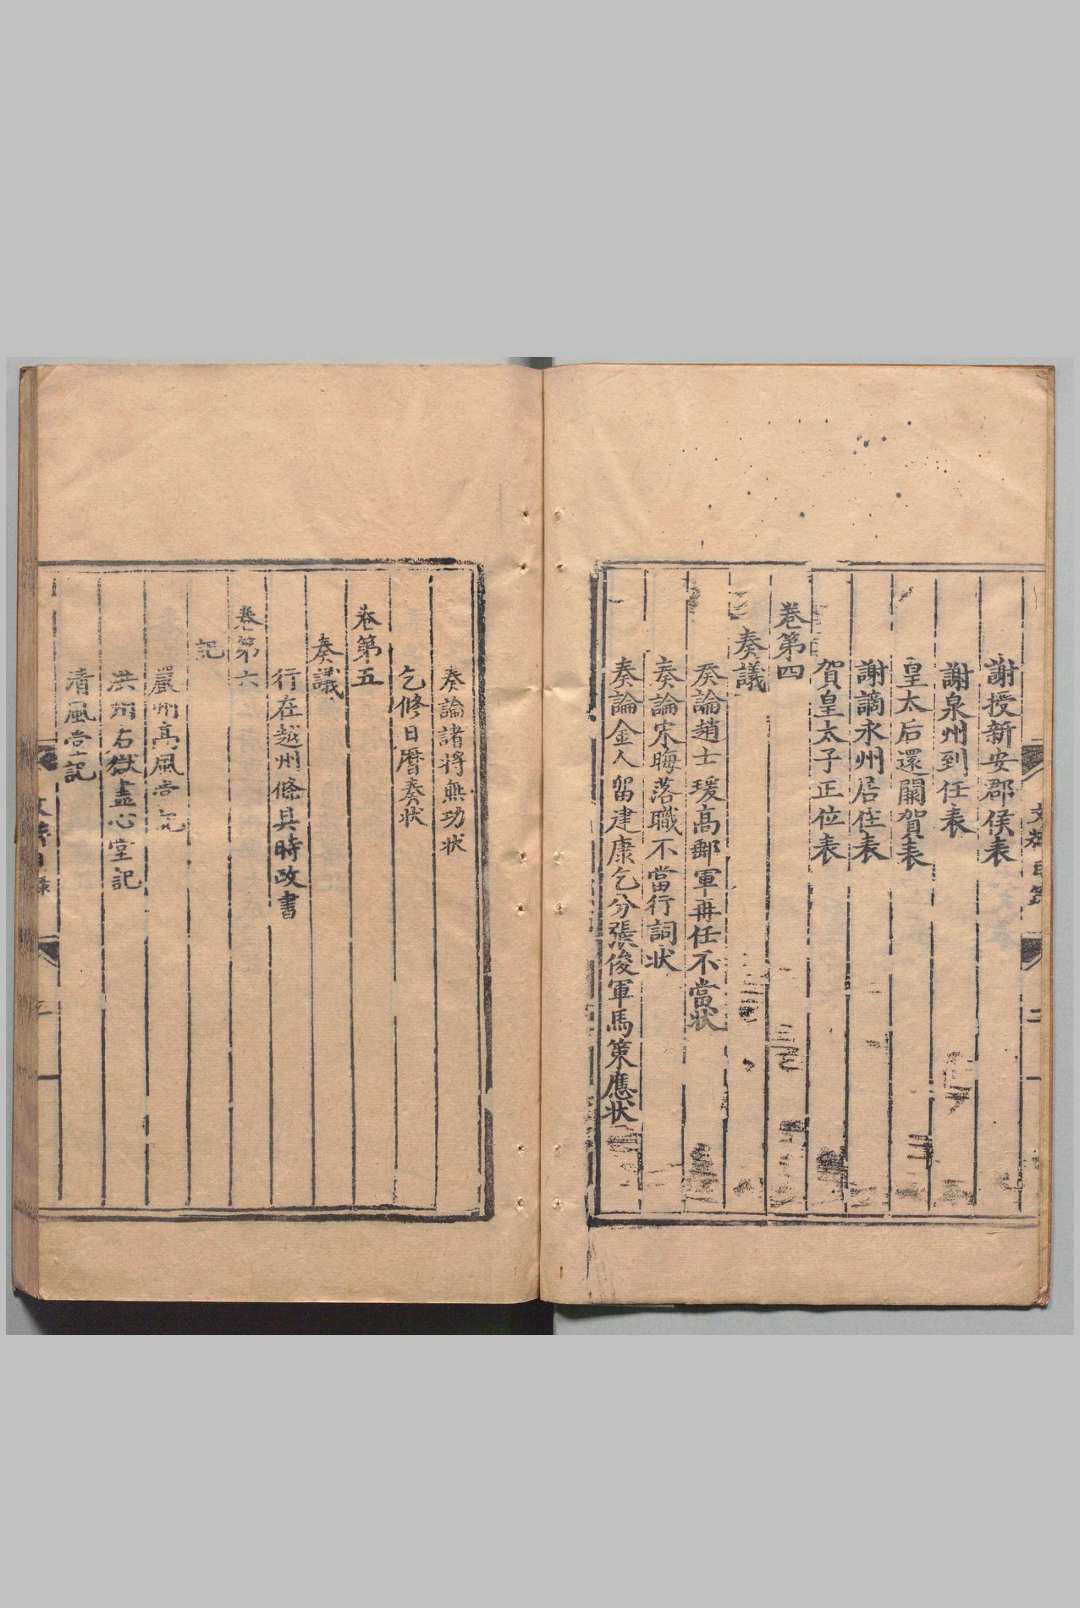 謝授新安郡侯表
謝泉州到任表
皇太后還闕賀表
謝謫永州居住表
賀皇太子正位表
卷第四
奏議
奏論趙士瑗高郵軍再任不當狀
奏論宋晦落職不當行詞狀
奏論金人留建康乞分張俊軍馬策應狀
奏論諸將無功狀
乞修日曆奏狀
卷第五
奏議
行在越州條具時政書
卷第六
記
嚴州高風堂記
洪州右獄盡心堂記
清風堂記